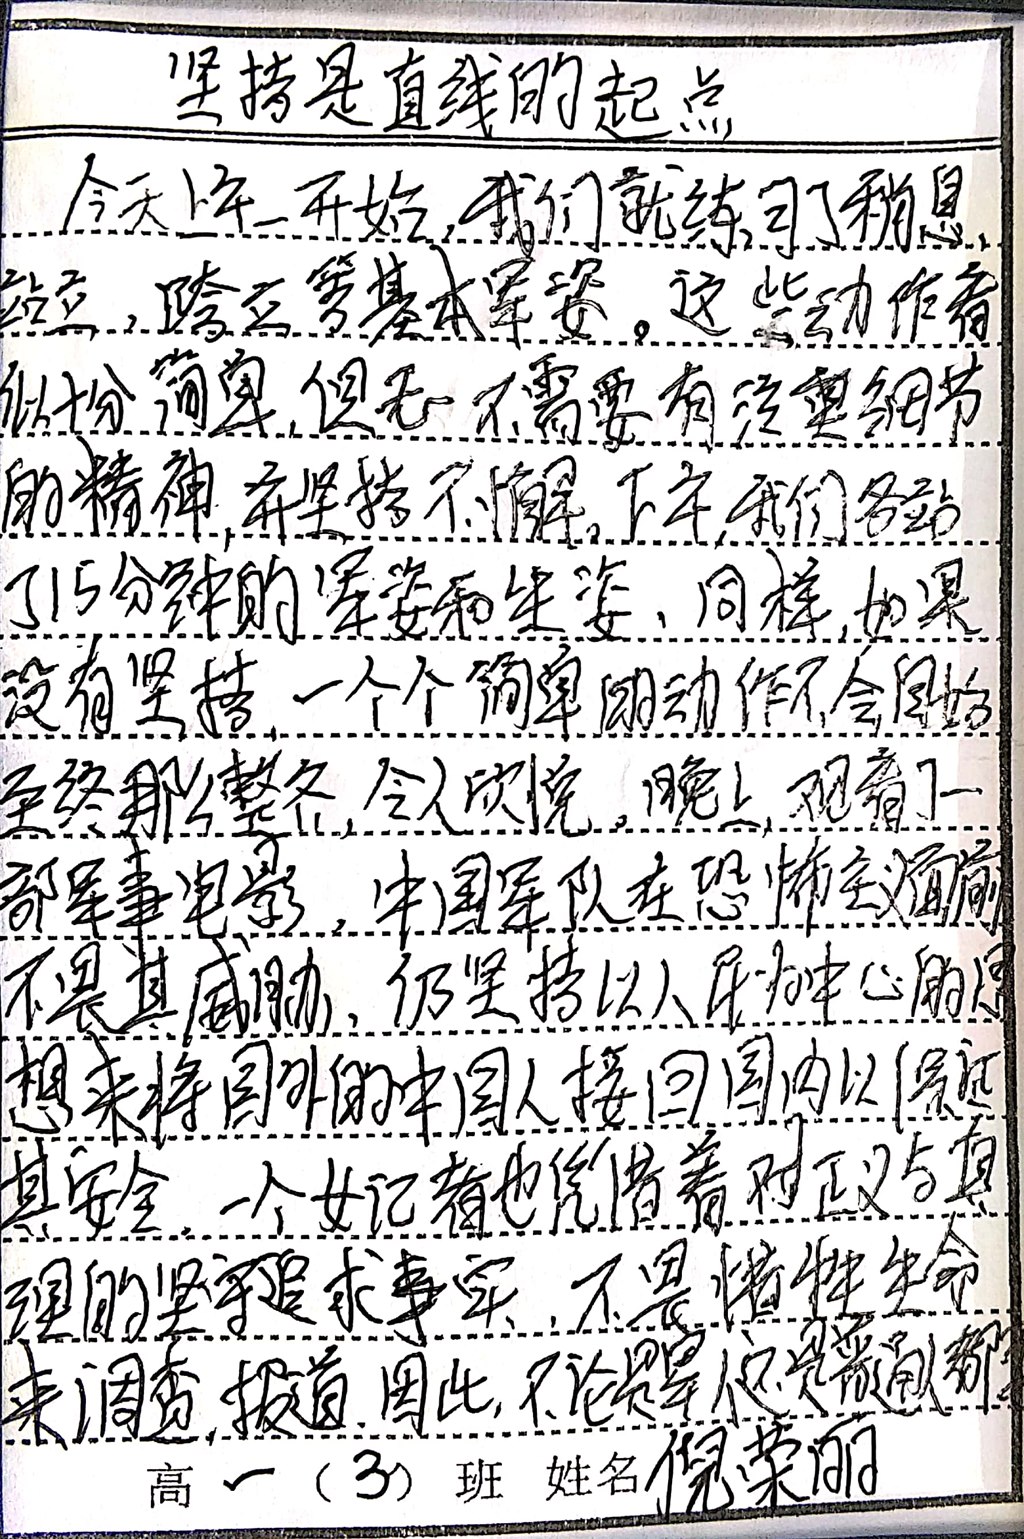 坚持是直线的起点
今天上午一开始,我们就练习了稍息,
站立,跨立等基本军姿。这些动作看
似十分简单,但无一不需要有注重细节
的精神,并坚持不懈。下午,我们各站
了15分钟的军姿和坐姿、同样,如果
没有坚持,一个个简单的动作不会自始
至终那么整齐,令人欣悦。晚上,观看了一
部军事电影,中国军队在恐怖主义面前
不畏其威胁、仍坚持以人民为中心的思
想来将国外的中国人接回国内以保证
其安全。一个女记者也凭借着对正义与真
理的坚守追求事实,不畏惜牲生命
来调查,报道。因此,不论是军人还是普通人都
高一(3)班 姓名倪荣丽